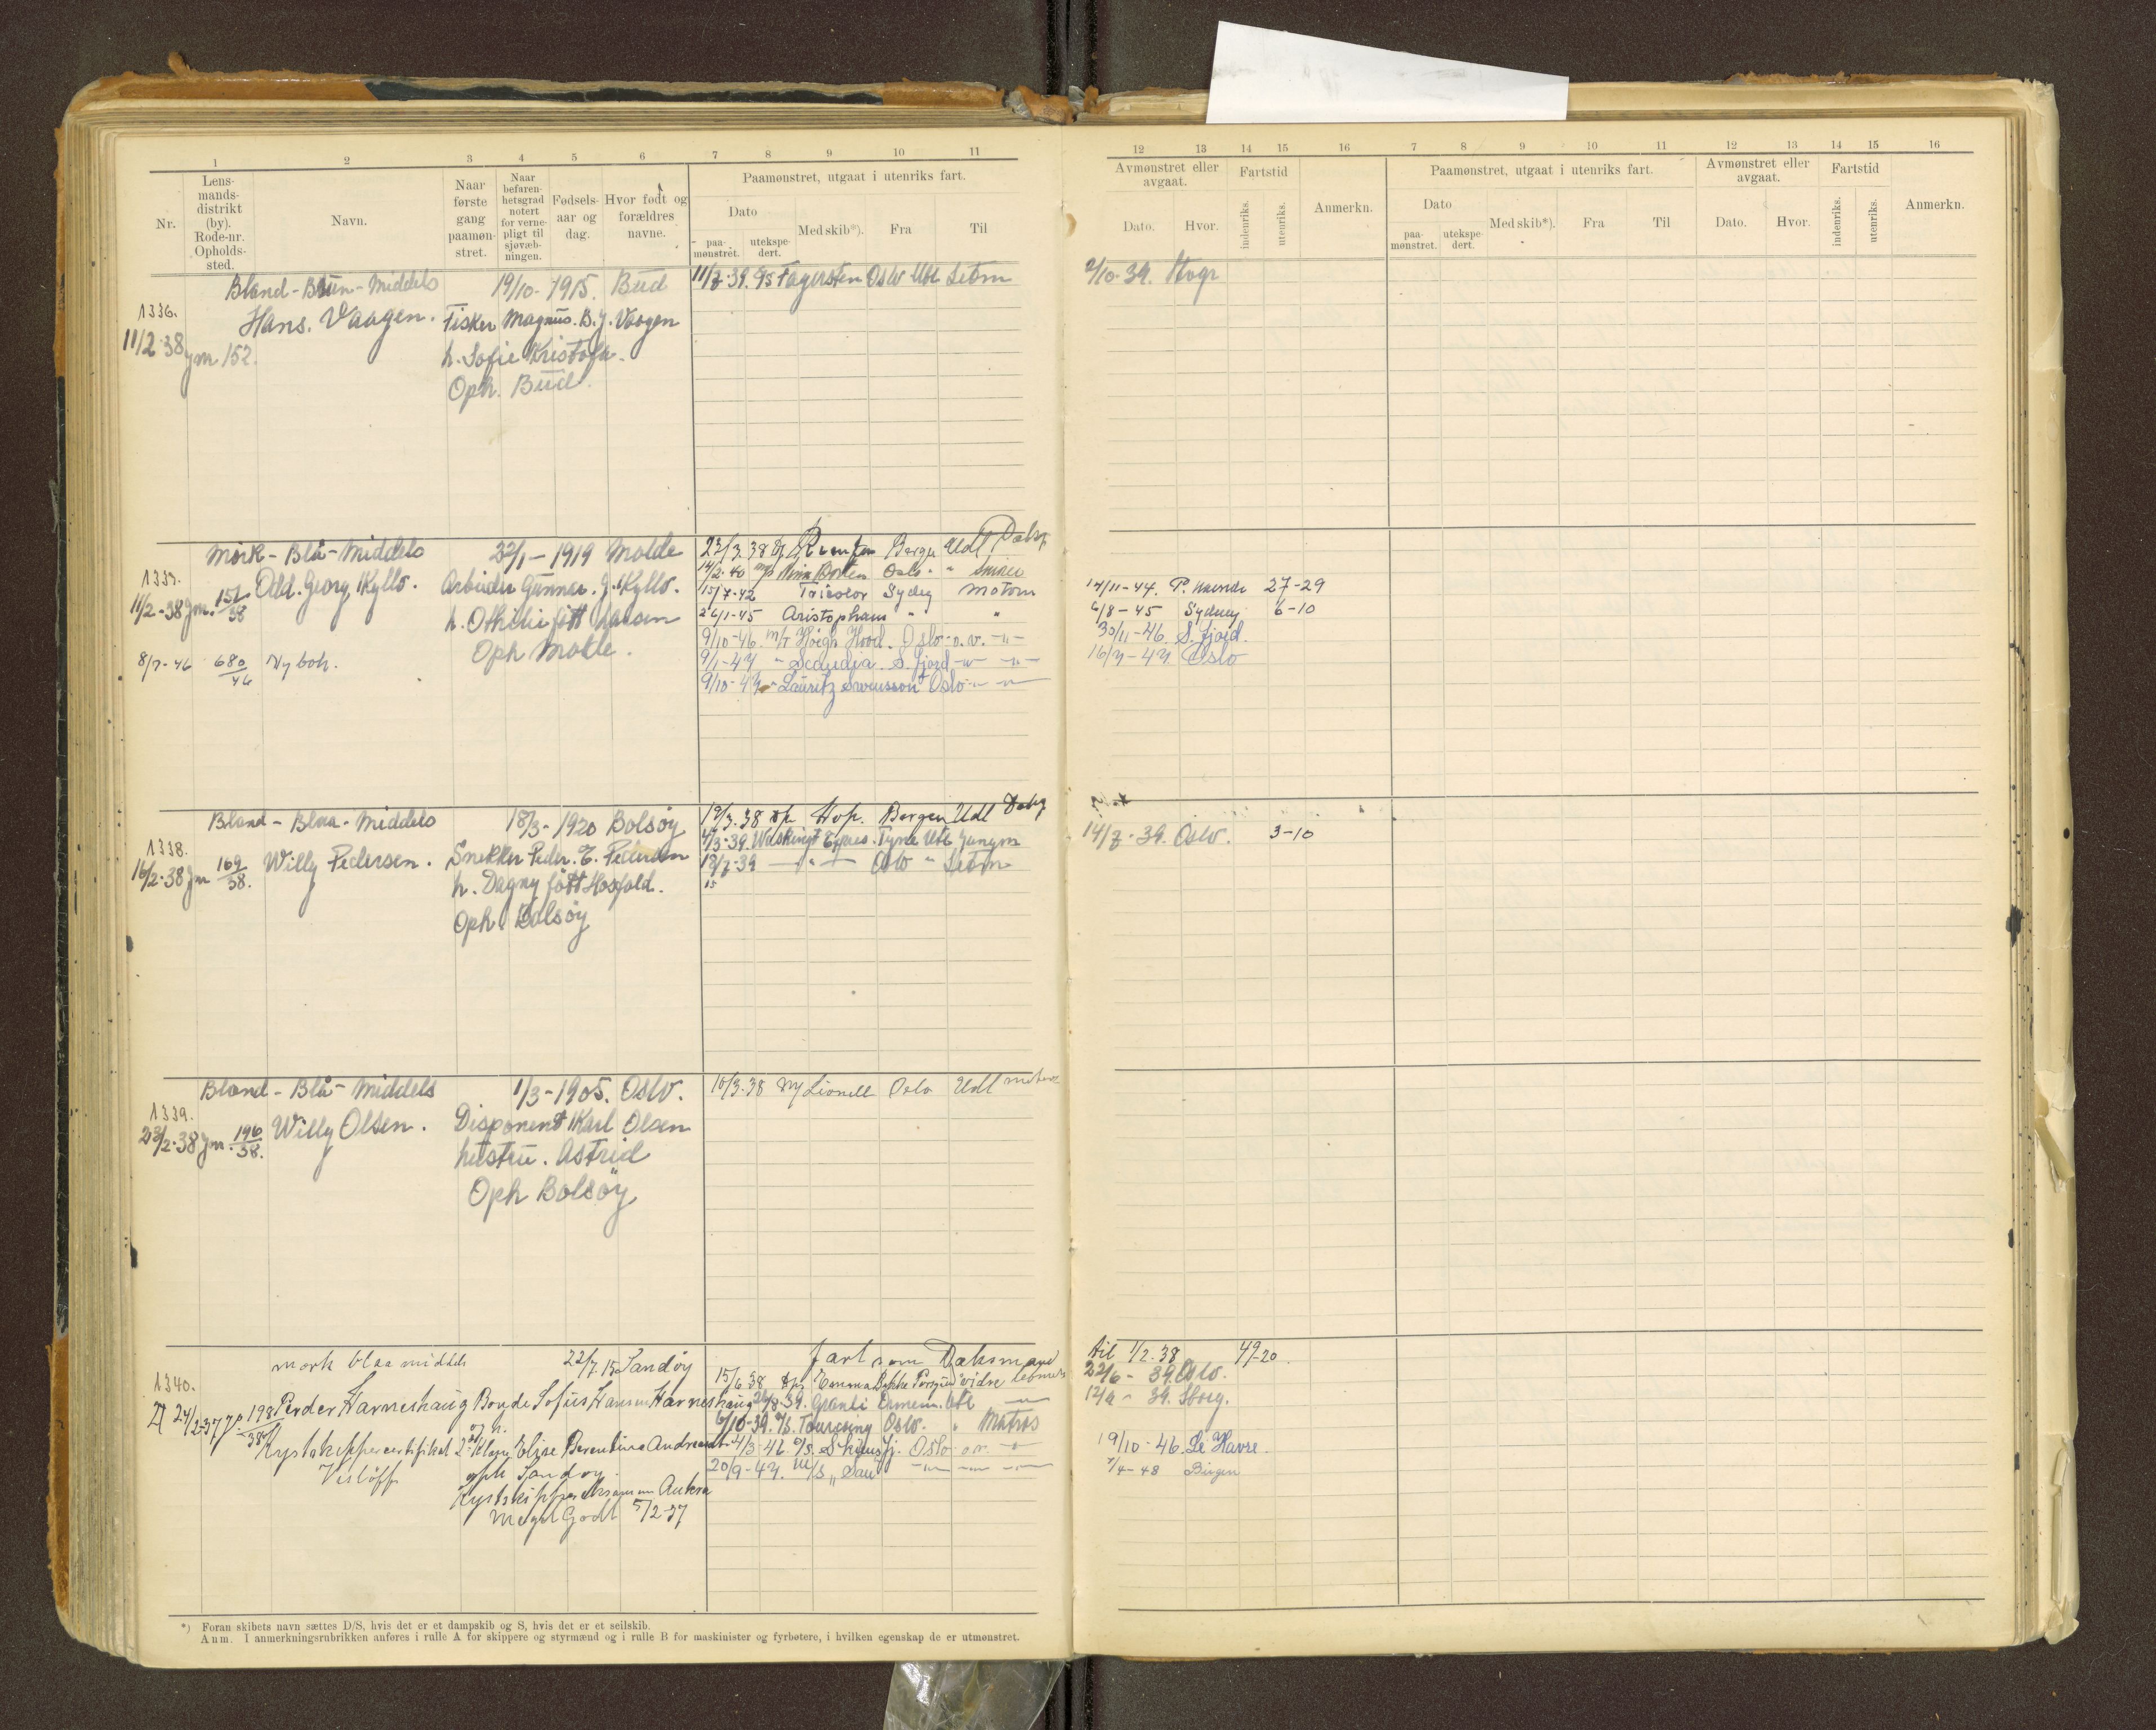 1 2 3 4 5 6 7 8 9 10 11
Nr.
Lens-
mands-
distrikt
(by).
Rode-nr.
Opholds-
sted.
Navn.
Naar
første
gang
paamøn-
stret.
Naar
befaren-
hetsgrad
notert
for verne-
pligt til
sjøvæb-
ningen.
Fødsels-
aar og
dag.
Hvor født og
forældres
navne.
Paamønstret, utgaat i utenriks fart.
Dato
paa-
mønstret.
utekspe-
dert.
Med skib*).
Fra
Til
Bland - Brun - Middels 19/10 - 1915. Bud
1336. Hans. Vaagen. Fisker Magnus. B. J. Vaagen
11/2-38 Jm 152. h. Sofie Kristofa.
Oph. Bud.
11/7-39. Fagersten Oslo Utl Letm
Mørk - Blå - Middels 22/1 - 1919 Molde
Odd. Georg Kyllo. Arbeider Gunnar. J. Kyllo.
11/2-38 Jm. h. Othilie født
Oph Molde.
8/7-46 680/46 Ny bok.
23/3.38 Bergn Utl
14/2-40 Oslo "
15/7-42 Tricolor Sydny Motorm
26/1-45 Aristophanes " "
9/10-46. m/t Høegh Hood. Oslo - o.v. -"-
9/1-47 " Scandia. S.fjord -"- -"-
9/10-47 - Lauritz Swensson Oslo -"- -"-
Bland - Blaa - Middels 18/3 - 1920 Bolsøy
1338. Willy Pedersen. Snekker Peder. E. Pedersen
16/2-38 Jm 169/38. h. Dagny født
Oph. Bolsøy
19/3.38 Hop. Bergen Utl
4/3-39. Washingt Expres. Tyne Utl Jungm
18/7-39 -"- Oslo " Letm
Bland - Blå - Middels 1/3 - 1905. Oslo.
1339. Willy Olsen. Disponent Karl Olsen
Jm. 196/38. hustru. Astrid
Oph Bolsøy
10/3.38 Lionell Oslo Utl
mørk blaa middels 22/7 15 Sandøy
1340.
24/2-37 198/38 Peder Harneshaug Bonde Sofus Hansen Harneshaug
og h.
Kystskippercertifikat 2 Klasse Elise Berentine
oph Sandøy.
Kystskippereksamen Aukra
Meget Godt 5/2-37
fart som Dæksmand
15/6 38 Emma Bakke
Granli Utl
6/10-39. Tourcoing Oslo. " Matros
4/3-46. Oslo o.v. -"-
20/9-47. M/S "Sau" -"- -"- -"-
*) Foran skibets navn sættes D/S, hvis det er et dampskib og S, hvis det er et seilskib.
Anm. I anmerkningsrubrikken anføres i rulle A for skippere og styrmænd og i rulle B for maskinister og fyrbøtere, i hvilken egenskap de er utmønstret.
12 13 14 15 16 7 8 9 10 11 12 13 14 15 16
Avmønstret eller
avgaat.
Dato.
Hvor.
Fartstid
indenriks.
utenriks.
Anmerkn.
Paamønstret, utgaat i utenriks fart.
Dato
paa-
mønstret.
utekspe-
dert.
Med skib*).
Fra
Til
Avmønstret eller
avgaat.
Dato.
Hvor.
Fartstid
indenriks.
utenriks.
Anmerkn.
2/10-39.
27-29
6/8-45 Sydney 6-10
30/11-46. S.fjord.
16/7-47 Oslo
14/7-39. Oslo. 3-10
til 1/2.38 49-20.
22/6-39. Oslo.
19/10-46. Le Havre.